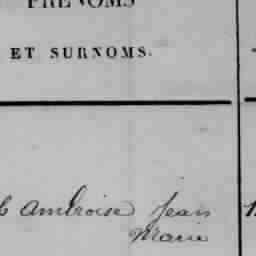 PRÉNOMS
ET SURNOMS.
Ambroise Jean
Marie